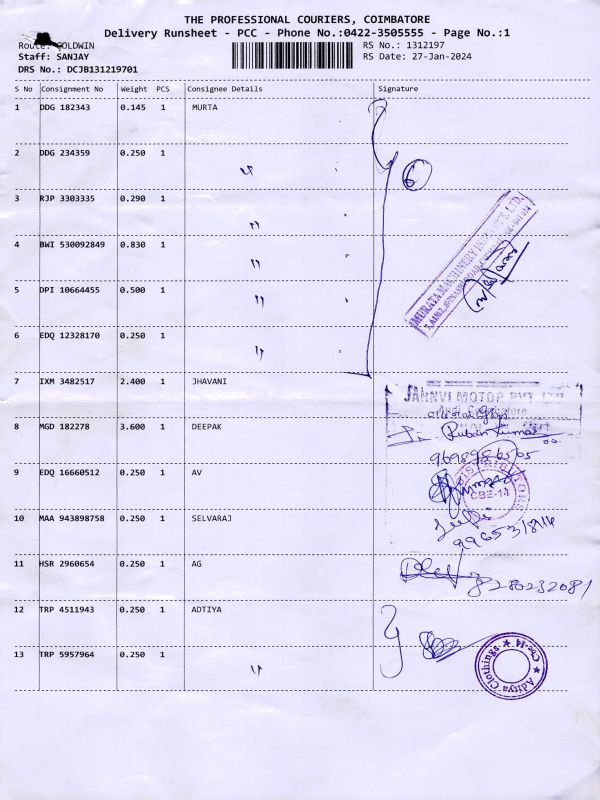 THE PROFESSIONAL COURIERS, COIMBATORE
Delivery Runsheet - PCC - Phone No.:0422-3505555 - Page No.:1
Route: GOLDWIN
RS No.: 1312197
Staff: SANJAY
RS Date: 27-Jan-2024
DRS No.: DCJB131219701
S No Consignment No Weight PCS Consignee Details Signature
1 DDG 182343 0.145 1 MURTA
2 DDG 234359 0.250 1 "
6
3 RJP 3303335 0.290 1 "
4 BWI 530092849 0.830 1 "
MURATA MACHINERY INDIA PVT. LTD.
5 DPI 10664455 0.500 1 "
6 EDQ 12328170 0.250 1 "
7 IXM 3482517 2.400 1 JHAVANI
JAHNVI MOTOR PVT LTD
8 MGD 182278 3.600 1 DEEPAK
Ruban Kumar
9 EDQ 16660512 0.250 1 AV
DISTRIBUTORS
CBE-14
10 MAA 943898758 0.250 1 SELVARAJ
11 HSR 2960654 0.250 1 AG
8280232081
12 TRP 4511943 0.250 1 ADTIYA
13 TRP 5957964 0.250 1 "
Aditya Clothings
Cbe-14